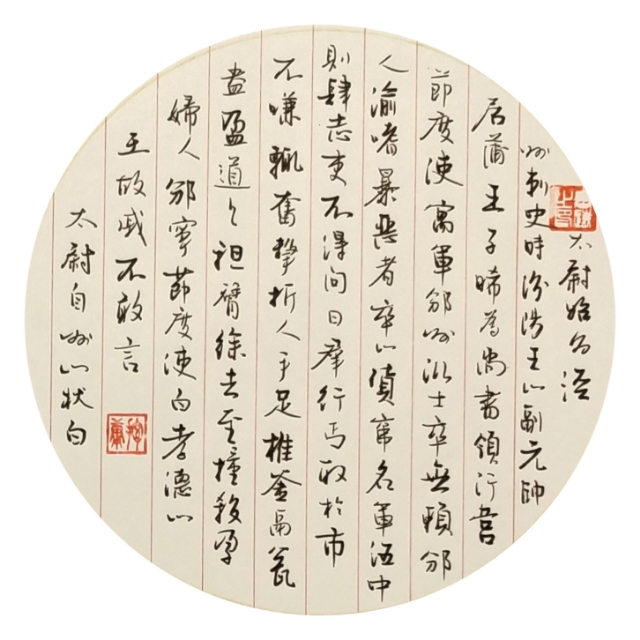 太尉始为涇
州刺史時汾陽王以副元帥
居蒲王子晞為尚書領行營
節度使寓軍邠州縱士卒無賴邠
人偷嗜暴惡者卒以貨竄名軍伍中
則肆志吏不得問日羣行丐取於市
不嗛輒奮擊折人手足椎釜鬲瓮
盎盈道上袒臂徐去至撞殺孕
婦人邠寧節度使白孝德以
王故戚不敢言
太尉自州以状白